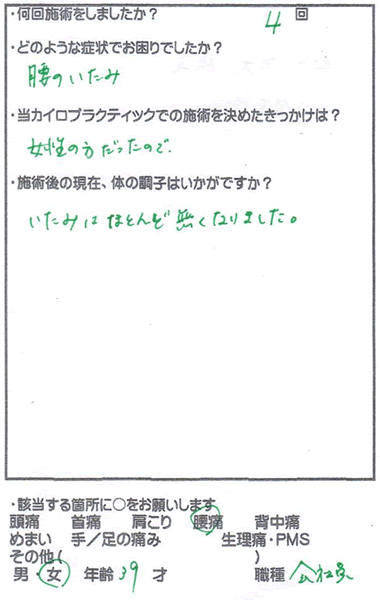 ・何回施術をしましたか? 4 回
・どのような症状でお困りでしたか?
腰のいたみ
・当カイロプラクティックでの施術を決めたきっかけは?
女性の方だったので.
・施術後の現在、体の調子はいかがですか?
いたみはほとんど無くなりました。
・該当する箇所に○をお願いします
頭痛 首痛 肩こり 腰痛 背中痛
めまい 手/足の痛み 生理痛・PMS
その他( )
男・女 年齢 39 才 職種 会社員